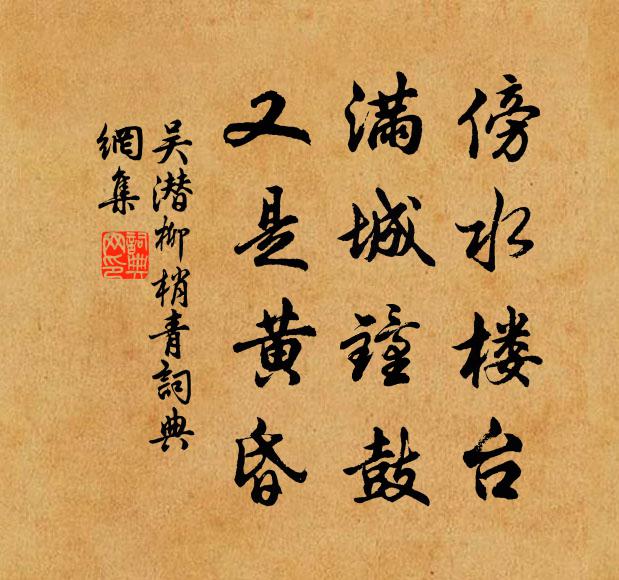 傍水楼台
满城鐘鼓
又是黄昏
吴潜柳梢青詞典
網集
詞典
网印